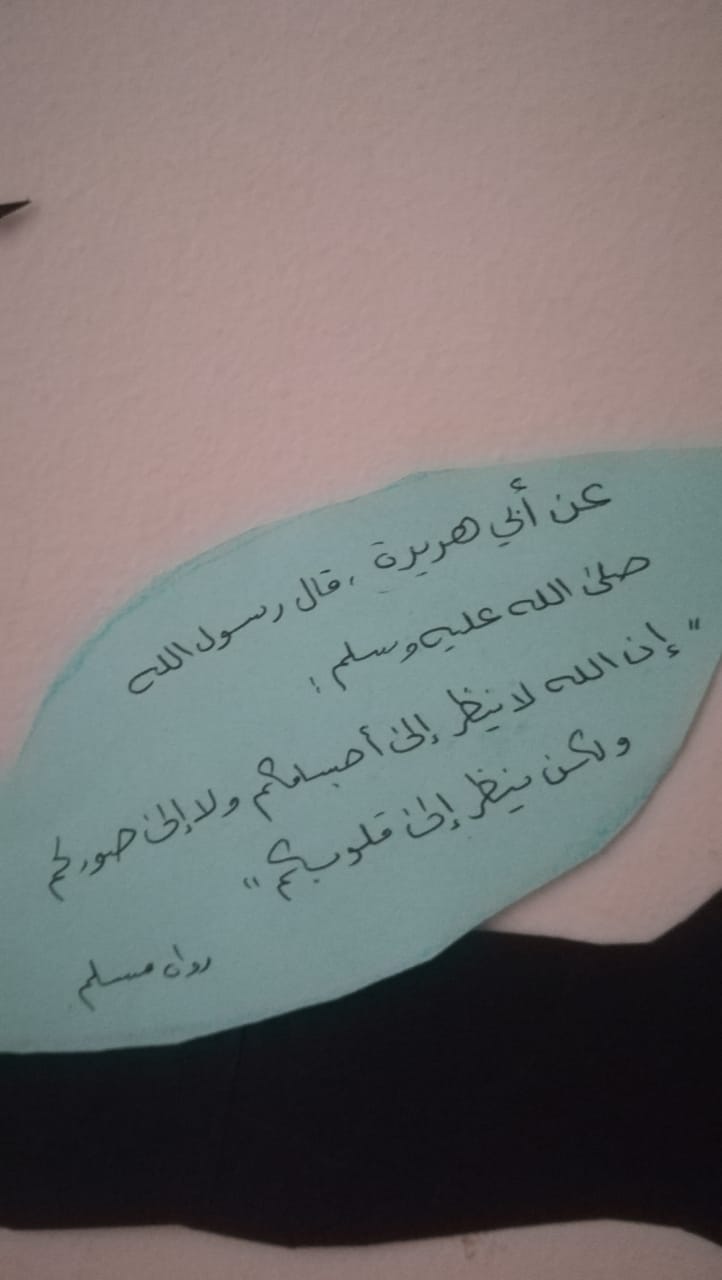 عن أبي هريرة ، قال رسول الله
صلى الله عليه وسلم :
"إن الله لا ينظر إلى أجسامكم ولا إلى صوركم
ولكن ينظر إلى قلوبكم"
رواه مسلم